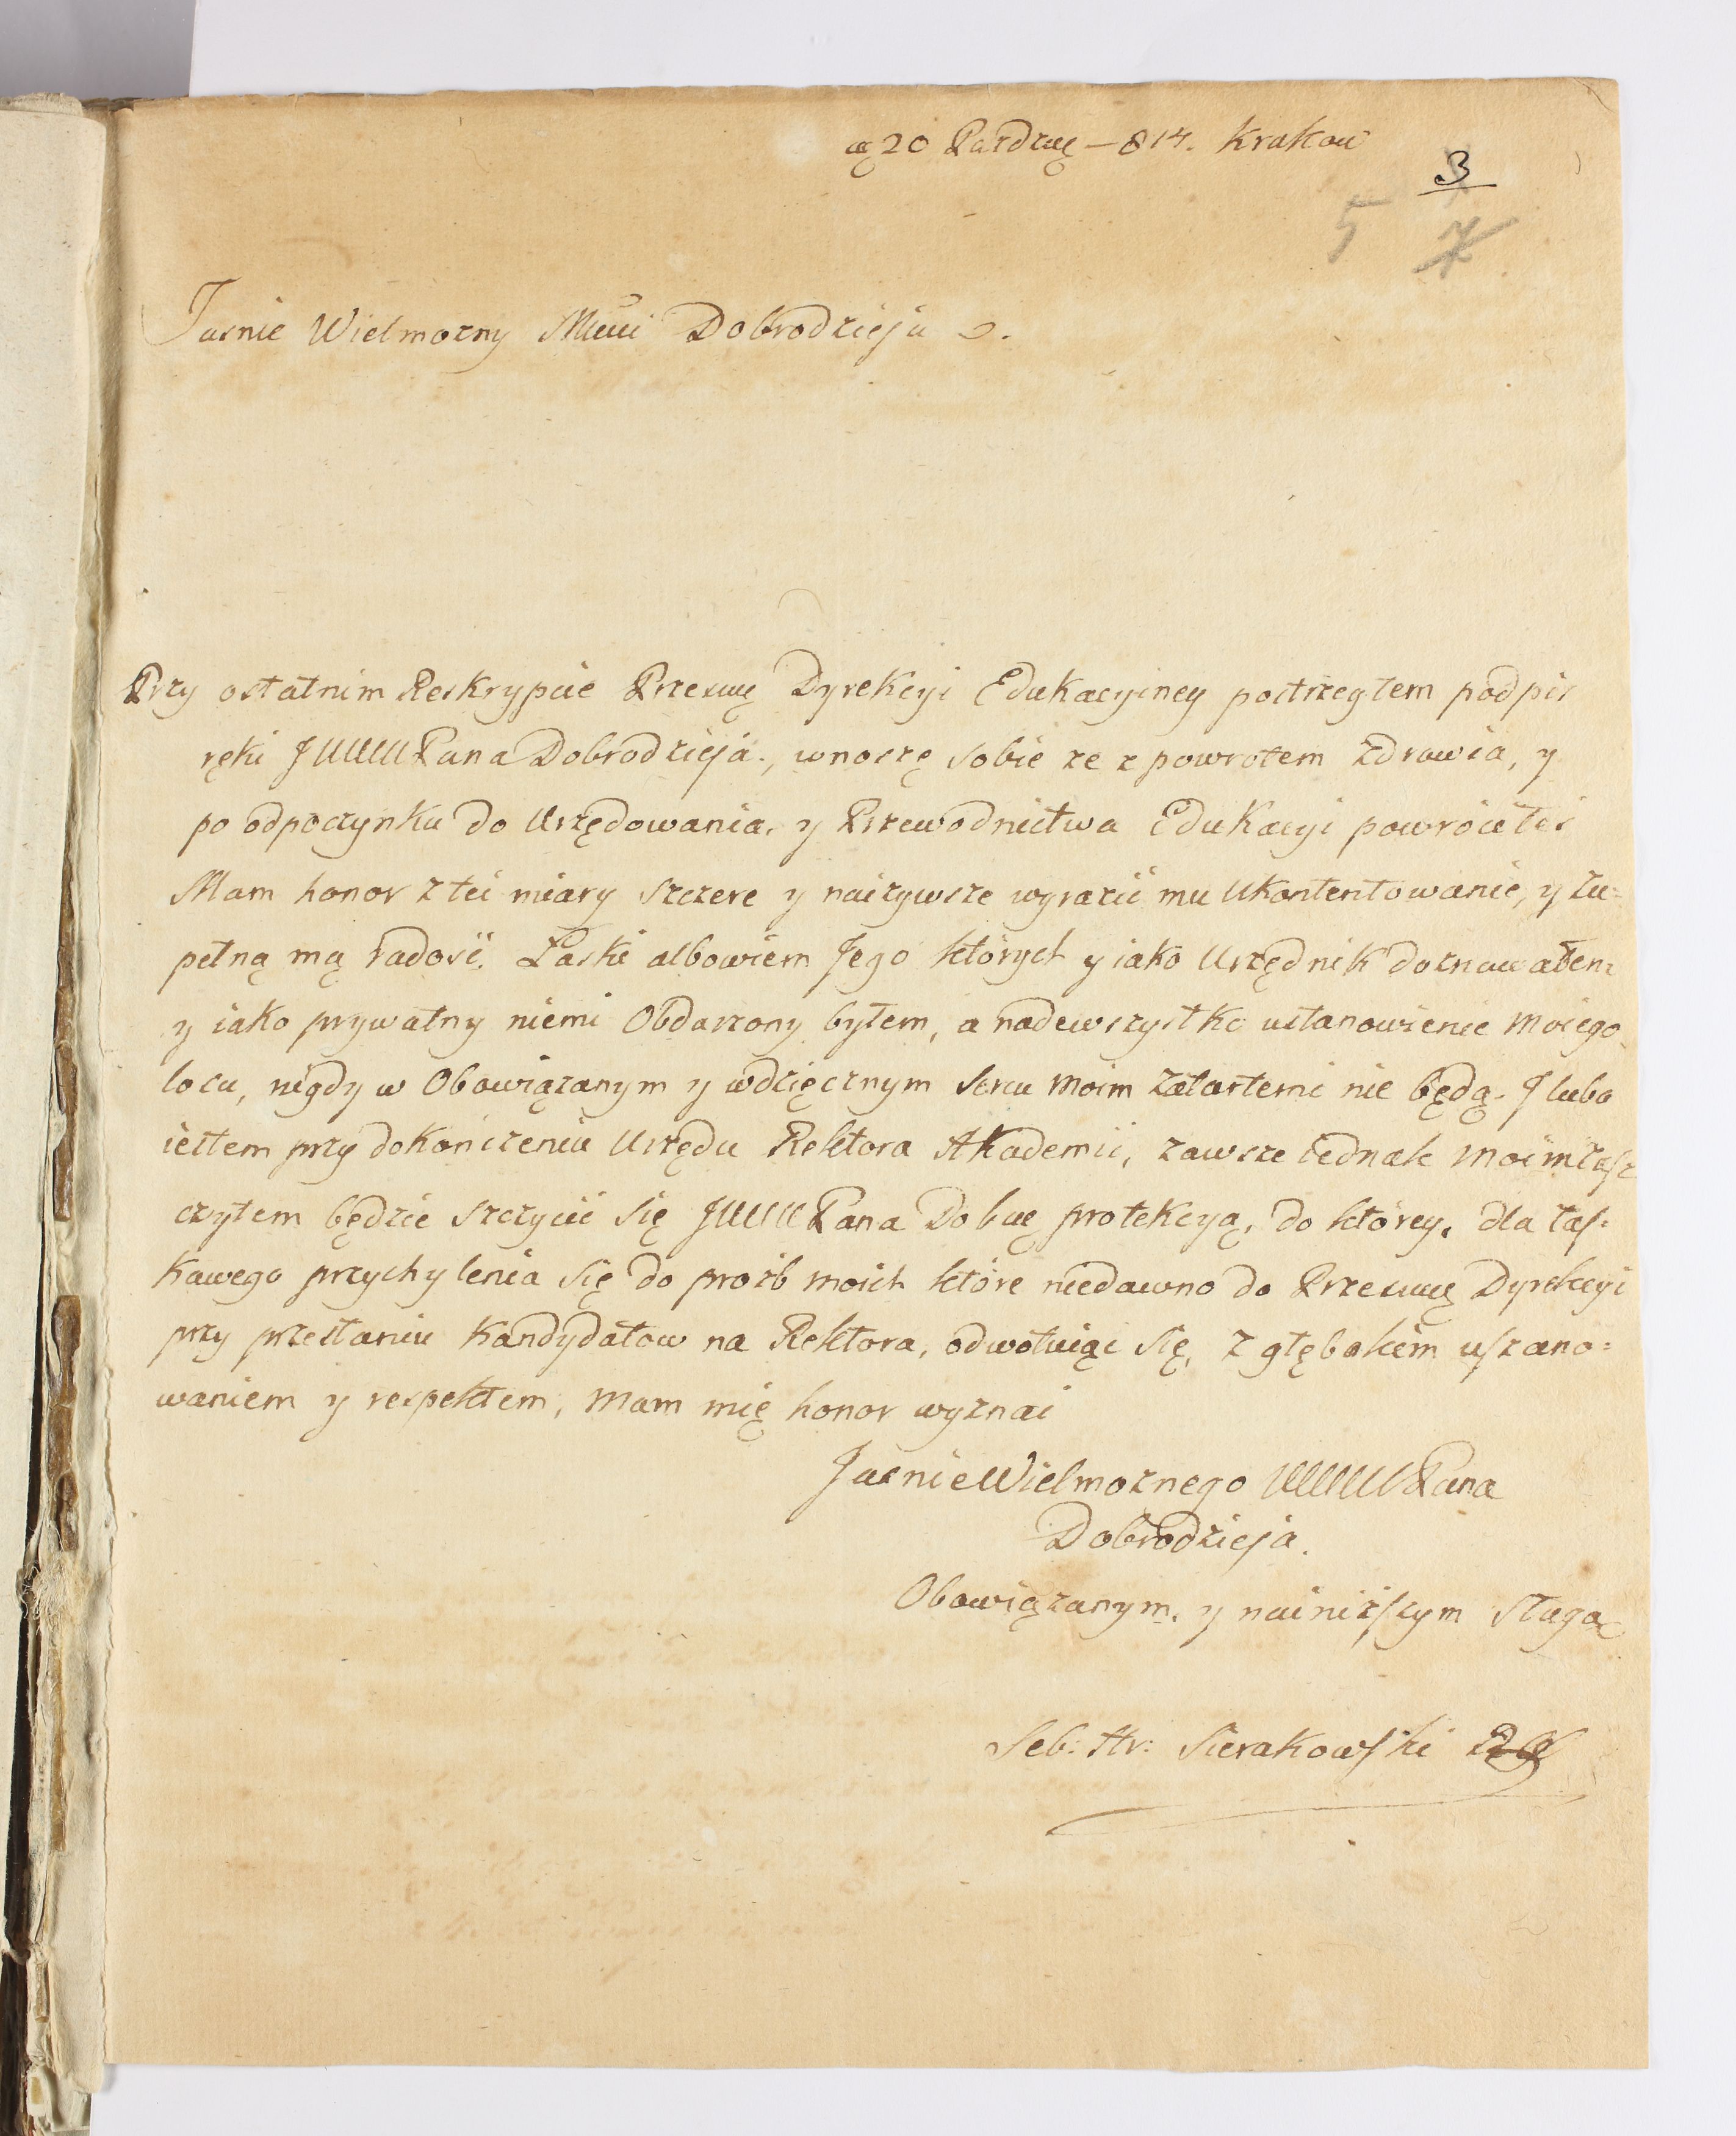 20 Pazdrwę – 814. Krakow
3
5 7
Jasnie Wielmozny Mwci Dobrodzieju
Przy ostatnim Reskrypcie Przeswę Dyrekcyi Edukacyiney postrzegłem podpis
ręki JWWPana Dobrodzieja., wnoszę sobie ze z powrotem zdrowia, y
po odpoczynku do Urzędowania, y Przewodnictwa Edukacyi powróciłes
Mam honor z tei miary szczere y naizywsze wyrazić mu Ukontentowanie, y zu=
pełną mą radość. Łaski albowiem Jego których y iako Urzędnik doznawałem
y iako prywatny niemi Obdarzony byłem, a nadewszystko ustanowienie moiego
losu, nigdy w Obowiązanym y wdzięcznym sercu moim zatartemi nie będą. J lubo
iestem przy dokończeniu Urzędu Rektora Akademii, zawsze iednak moim zasz
czytem będzie szczycić się JWWPana Dobwę protekcyą, do którey, dla łas=
kawego przychylenia się do prozb moich które niedawno do Przeswę Dyrekcyi
przy przesłaniu Kandydatow na Rektora, odwołuiąc się, z głębokim uszano=
waniem y respektem, mam mię honor wyznać
Jasnie Wielmoznego WWPana
Dobrodzieja.
Obowiązanym, y nainizszym sługą
Seb: Hr: Sierakowski